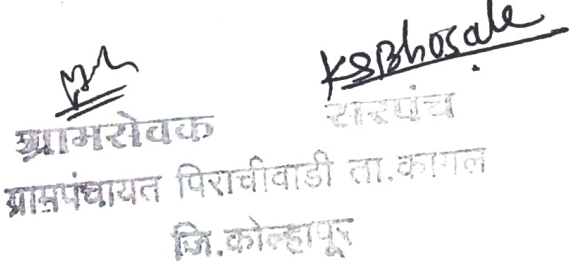 KSBhosale
ग्रामसेवक सरपंच
ग्रामपंचायत पिराचीवाडी ता.कागल
जि.कोल्हापूर